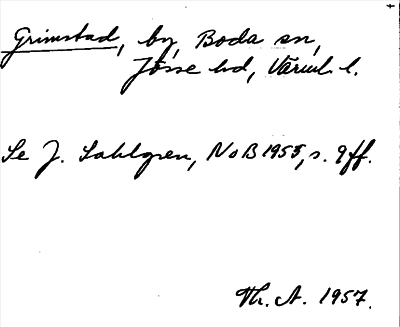 Grimstad, by, Boda sn,
Jösse hd, Värml. l.
Se J. Sahlgren, NoB 1955, s. 9 ff.
Th. A. 1957.